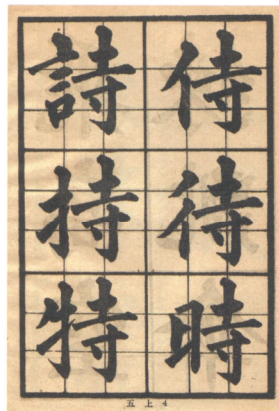 侍待時
詩持特
五上4